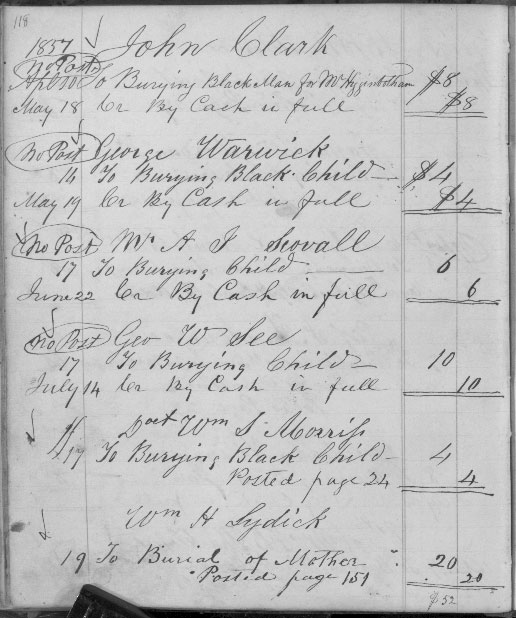 118
1857 John Clark
No Post
To Burying Black Man for Mr Higginbotham $8
May 18 Cr By Cash in full $8
No Post George Warwick
16 To Burying Black Child $4
May 19 Cr By Cash in full $4
No Post Mr A J Scovall
17 To Burying Child 6
June 22 Cr By Cash in full 6
No Post Geo W See
17 To Burying Child 10
July 14 Cr By Cash in full 10
Doct Wm S Morriss
17 To Burying Black Child 4
Posted page 24 4
Wm H Lydick
19 To Burial of Mother " 20
Posted page 151 20
$52